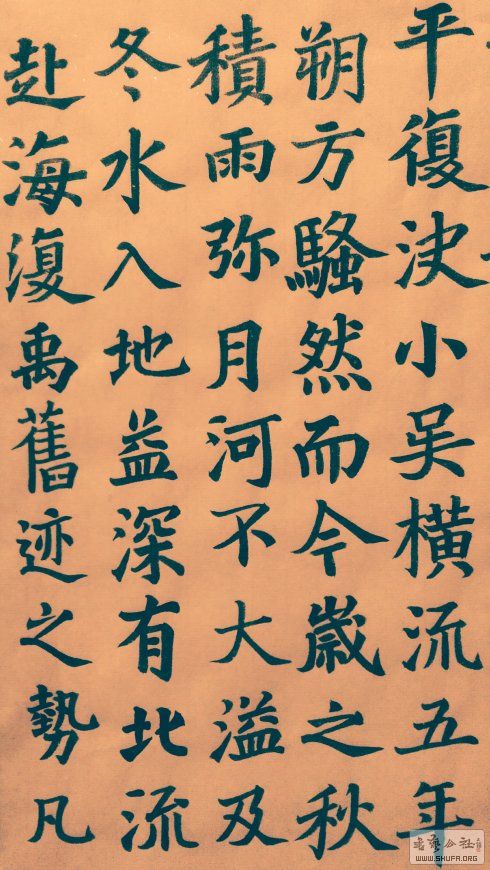 平復決小吴橫流五年
朔方騷然而今歲之秋
積雨弥月河不大溢及
冬水入地益深有北流
赴海復禹舊迹之勢凡
書藝公社
WWW.SHUFA.ORG